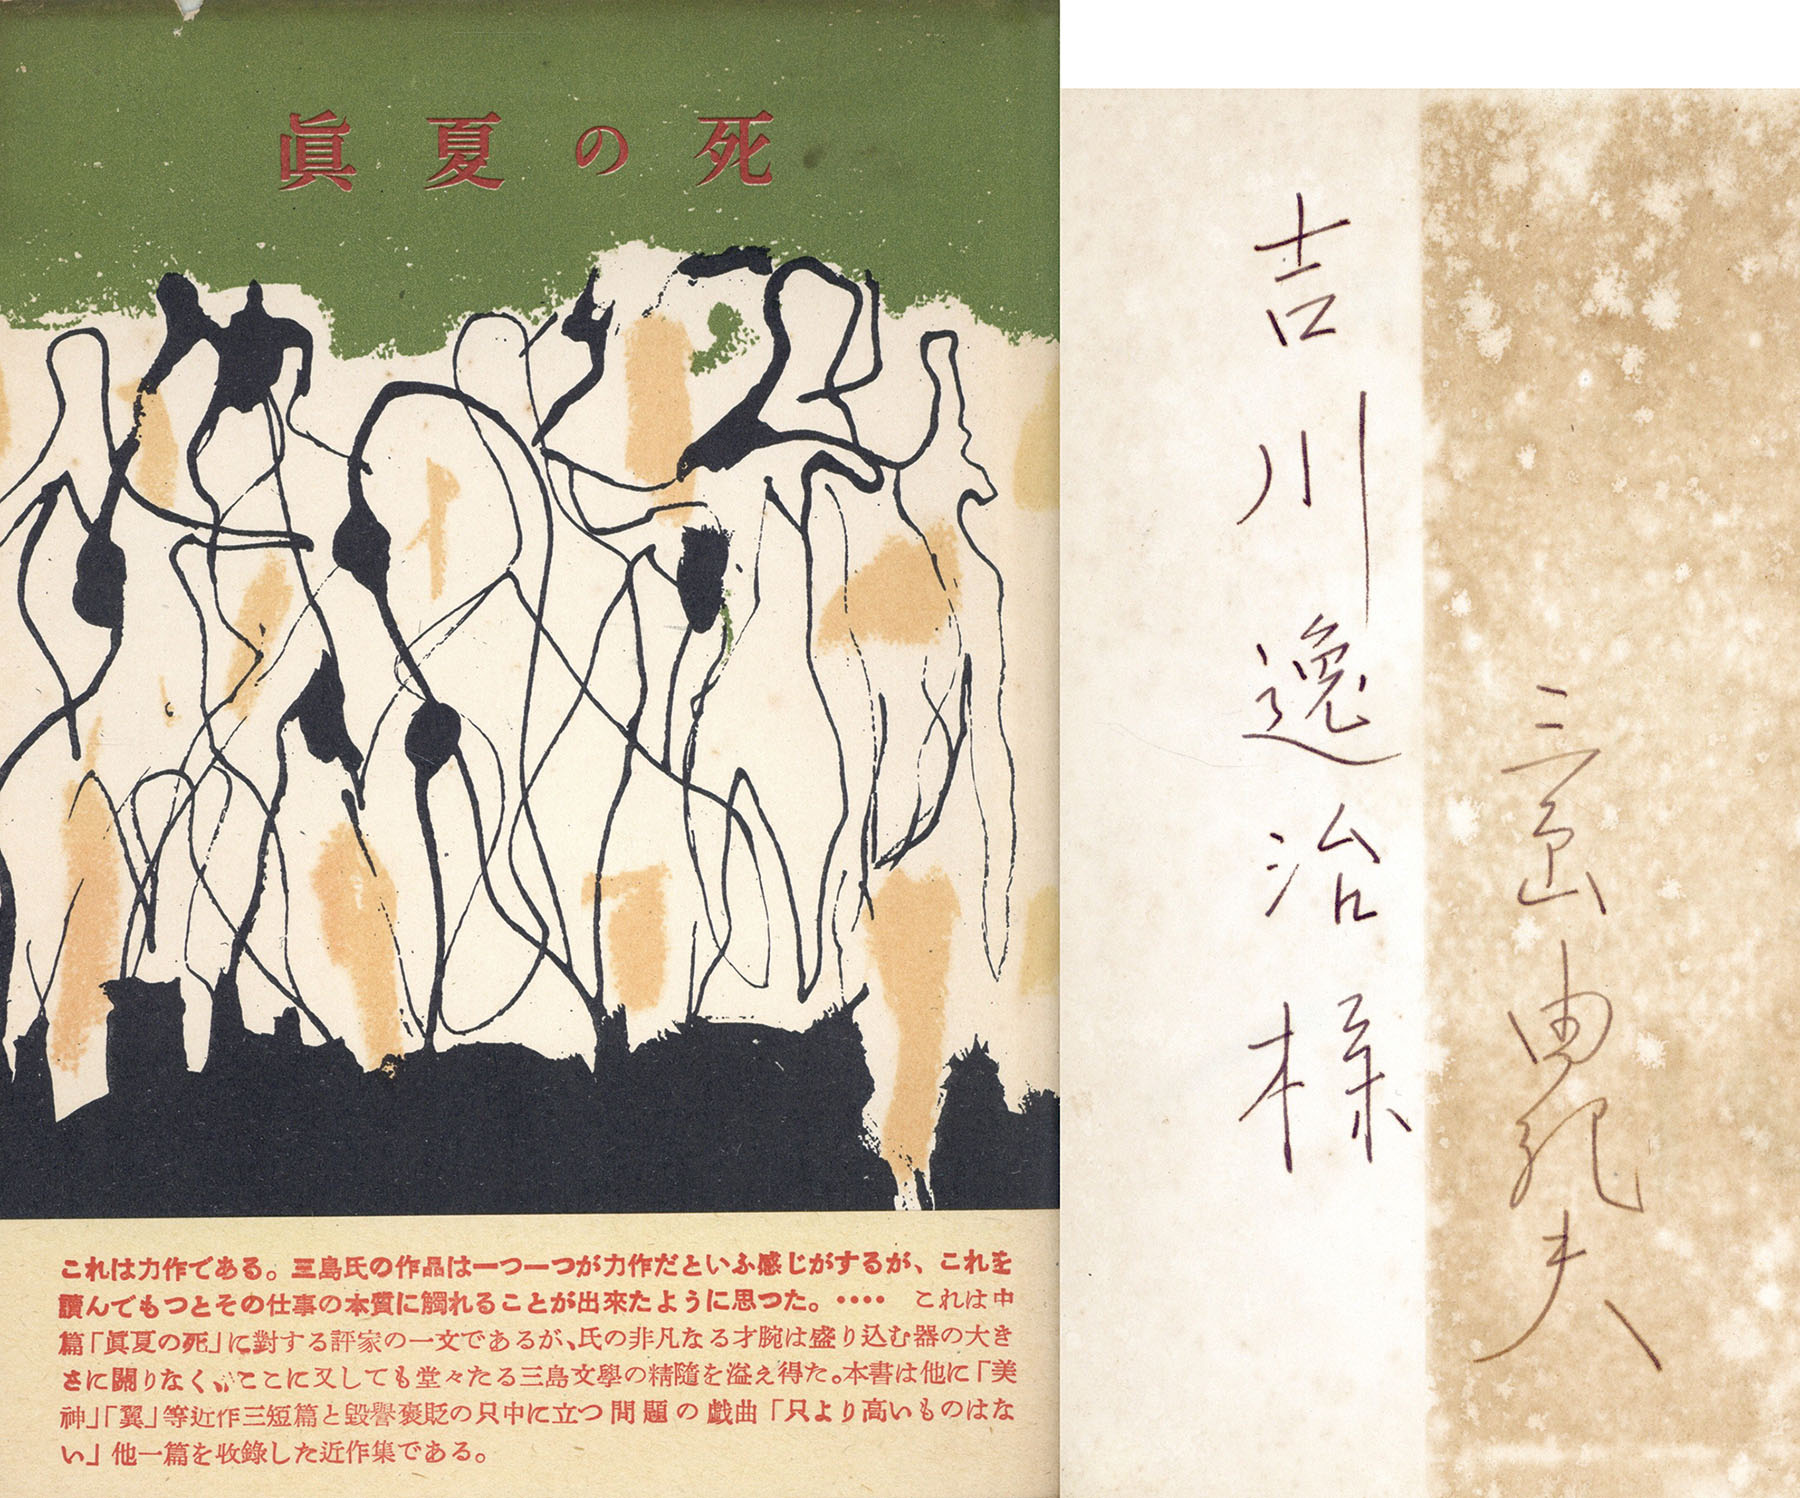 眞夏の死
これは力作である。三島氏の作品は一つ一つが力作だといふ感じがするが、これを
讀んでもつとその仕事の本質に觸れることが出來たように思つた。・・・・　これは中
篇「眞夏の死」に對する評家の一文であるが、氏の非凡なる才腕は盛り込む器の大き
さに關りなく、ここに又しても堂々たる三島文學の精隨を溢え得た。本書は他に「美
神」「翼」等近作三短篇と毀譽褒貶の只中に立つ問題の戯曲「只より高いものはな
い」他一篇を收錄した近作集である。
吉川逸治様
三島由紀夫